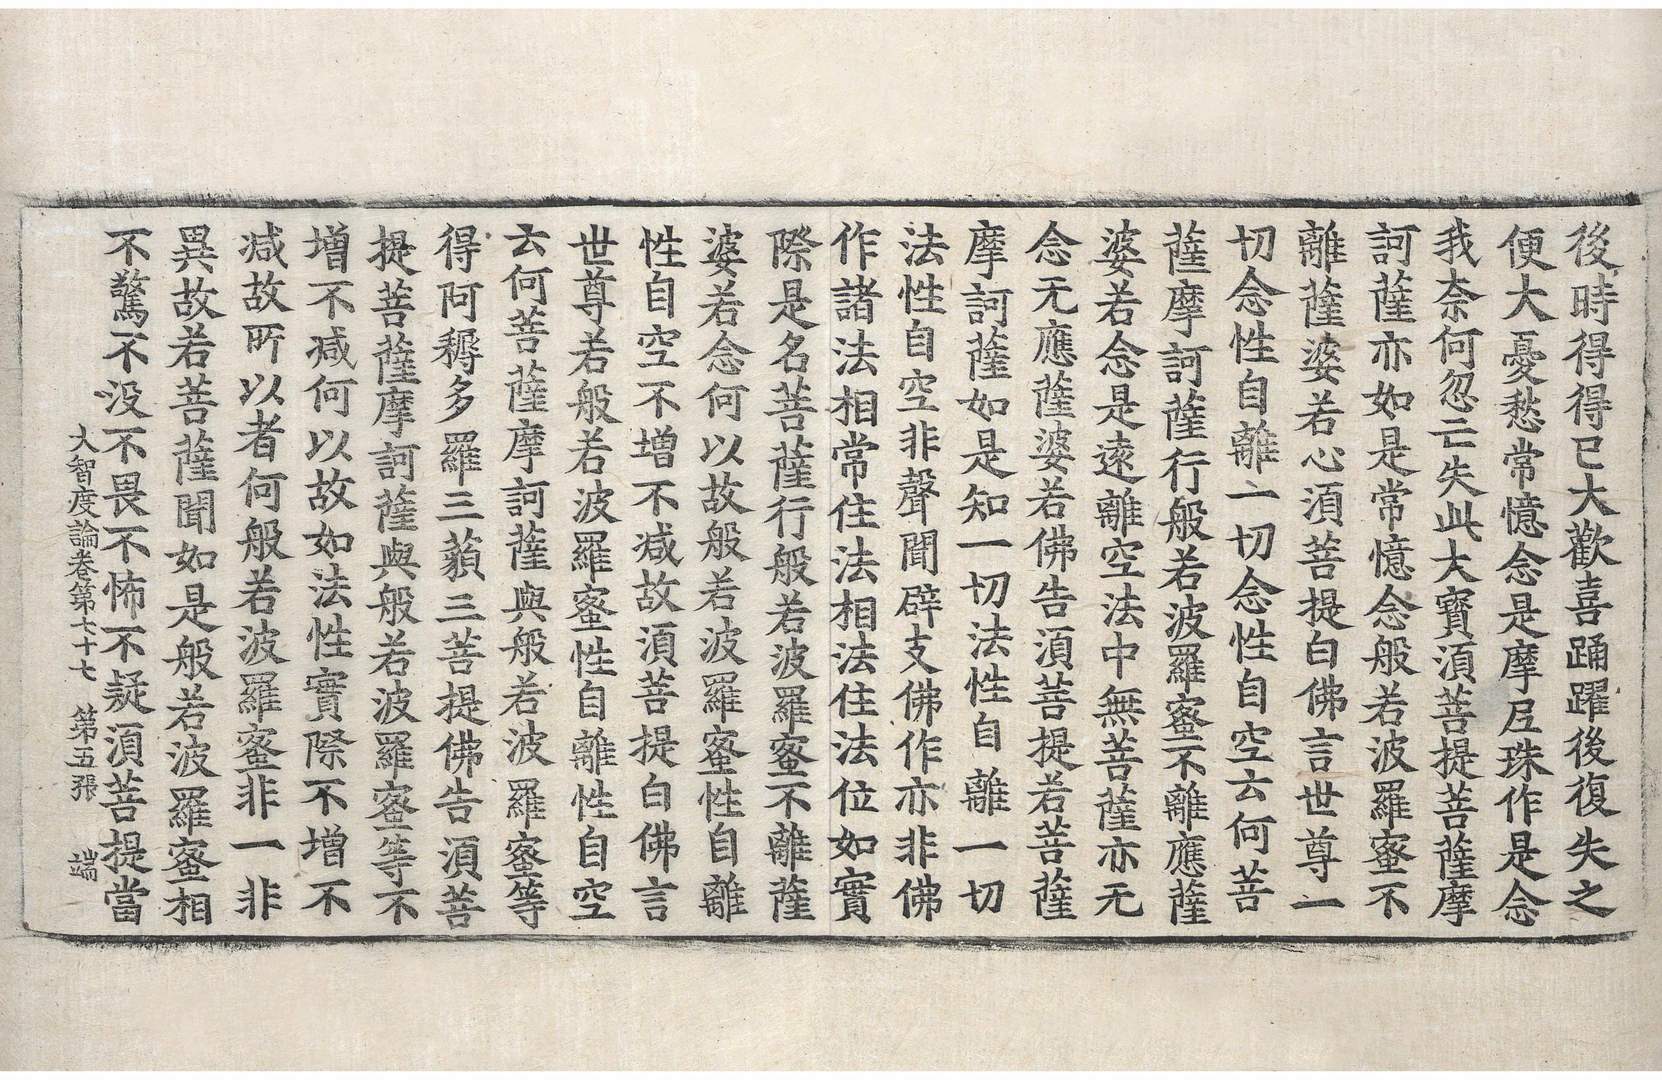 後時得得已大歡喜踊躍後復失之
便大憂愁常憶念是摩尼珠作是念
我奈何忽亡失此大寶湏菩提菩薩摩
訶薩亦如是常憶念般若波羅蜜不
離薩婆若心湏菩提白佛言世尊一
切念性自離一切念性自空云何菩
薩摩訶薩行般若波羅蜜不離應薩
婆若念是遠離空法中無菩薩亦无
念无應薩婆若佛告湏菩提若菩薩
摩訶薩如是知一切法性自離一切
法性自空非聲聞辟支佛作亦非佛
作諸法相常住法相法住法位如實
際是名菩薩行般若波羅蜜不離薩
婆若念何以故般若波羅蜜性自離
性自空不增不减故湏菩提白佛言
世尊若般若波羅蜜性自離性自空
云何菩薩摩訶薩與般若波羅蜜等
得阿耨多羅三藐三菩提佛告湏菩
提菩薩摩訶薩與般若波羅蜜等不
增不减何以故如法性實際不增不
减故所以者何般若波羅蜜非一非
異故若菩薩聞如是般若波羅蜜相
不驚不没不畏不怖不疑湏菩提當
大智度論卷第七十七 第五張 端